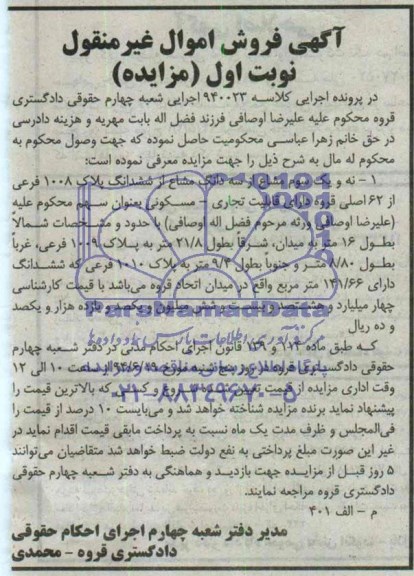 آگهی فروش اموال غیرمنقول
نوبت اول (مزایده)
در پرونده اجرایی کلاسه ۹۴۰۰۲۳ اجرایی شعبه چهارم حقوقی دادگستری
قروه محکوم علیه علیرضا اوصافی فرزند فضل اله بابت مهریه و هزینه دادرسی
در حق خانم زهرا عباسی محکومیت حاصل نموده که جهت وصول محکوم به
محکوم له مال به شرح ذیل را جهت مزایده معرفی نموده است:
۱ – نه و یک سوم مشاع از سه دانگ مشاع از ششدانگ پلاک ۱۰۰۸ فرعی
از ۶۲ اصلی قروه دارای قابلیت تجاری – مسکونی بعنوان سهم محکوم علیه
(علیرضا اوصافی ورثه مرحوم فضل اله اوصافی) با حدود و مشخصات شمالاً
بطول ۱۶ متر به میدان، شرقاً بطول ۲۱/۸ متر به پلاک ۱۰۰۹ فرعی، غرباً
بطول ۹/۸۰ متر و جنوباً بطول ۹/۴ متر به پلاک ۱۰۱۰ فرعی که ششدانگ
دارای ۱۴۱/۶۶ متر مربع واقع در میدان اتحاد قروه می‌باشد با قیمت کارشناسی
چهار میلیارد و هشتصد و بیست و شش میلیون و یکصد و یازده هزار و یکصد
و ده ریال
که طبق ماده ۱۱۴ و ۱۳۹ قانون اجرای احکام مدنی در دفتر شعبه چهارم
حقوقی دادگستری قروه در روز پنج شنبه مورخ ۹۴/۶/۱۹ از ساعت ۱۰ الی ۱۲
وقت اداری مزایده از قیمت تعیین شده شروع و کسی که بالاترین قیمت را
پیشنهاد نماید برنده مزایده شناخته خواهد شد و می‌بایست ۱۰ درصد از قیمت را
فی‌المجلس و ظرف مدت یک ماه نسبت به پرداخت مابقی قیمت اقدام نماید در
غیر این صورت مبلغ پرداختی به نفع دولت ضبط خواهد شد متقاضیان می‌توانند
۵ روز قبل از مزایده جهت بازدید و هماهنگی به دفتر شعبه چهارم حقوقی
دادگستری قروه مراجعه نمایند.
م – الف ۴۰۱
مدیر دفتر شعبه چهارم اجرای احکام حقوقی
دادگستری قروه – محمدی
ParsNamadData
۰۲۱-۸۸۳۴۹۶۷۰-۵